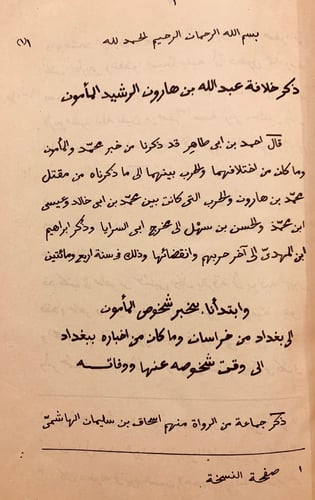 ١
(١/٢) بسم الله الرحمان الرحيم الحمد لله
ذكر خلافة عبدالله بن هارون الرشيد المأمون
قال احمد بن ابى طاهر قد ذكرنا من خبر محمّد والمأمون
وما كان من اختلافهما والحرب بينهما الى ما ذكرناه من مقتل
محمّد بن هارون والحرب التى كانت بين محمّد بن ابى خالد وعيسى
ابن محمّد والحسن بن سهل الى مخرج ابى السرايا وذكر ابراهيم
ابن المهدىّ الى آخر حربهم وانقضائها وذلك فى سنة اربع ومائتين
وابتدأنا بخبر شخوص المأمون
الى بغداد من خراسان وما كان من اخباره ببغداد
الى وقت شخوصه عنها ووفاته
ذكر جماعة من الرواة منهم اسحاق بن سليمان الهاشمىّ
١ صفحة النسخة